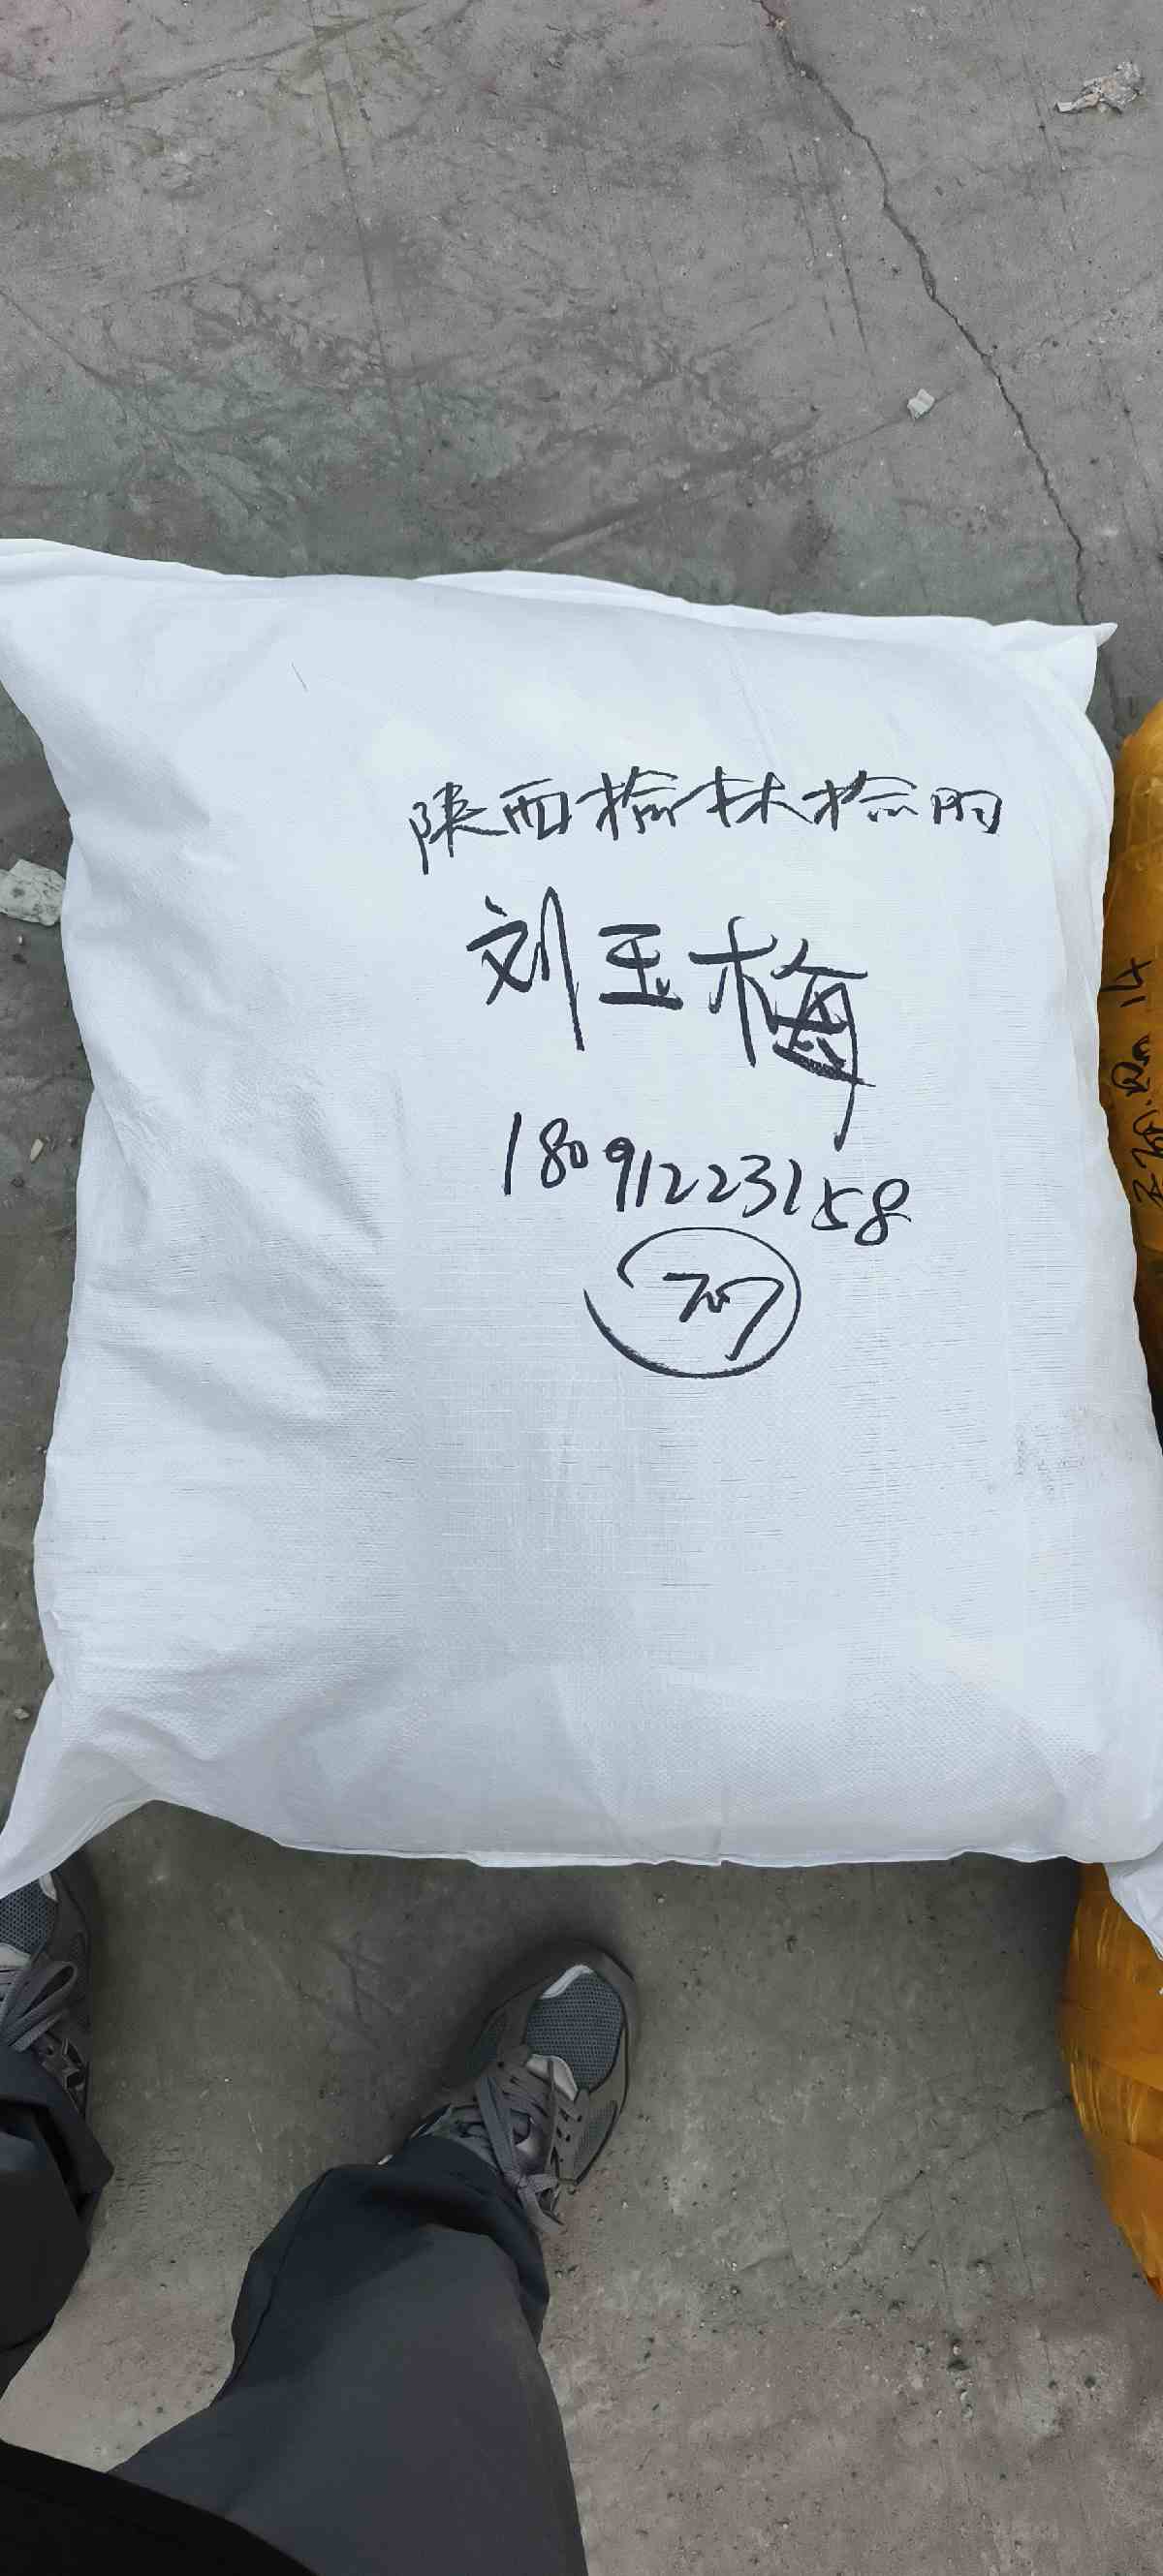 陕西榆林榆阳
刘玉梅
18091223158
707